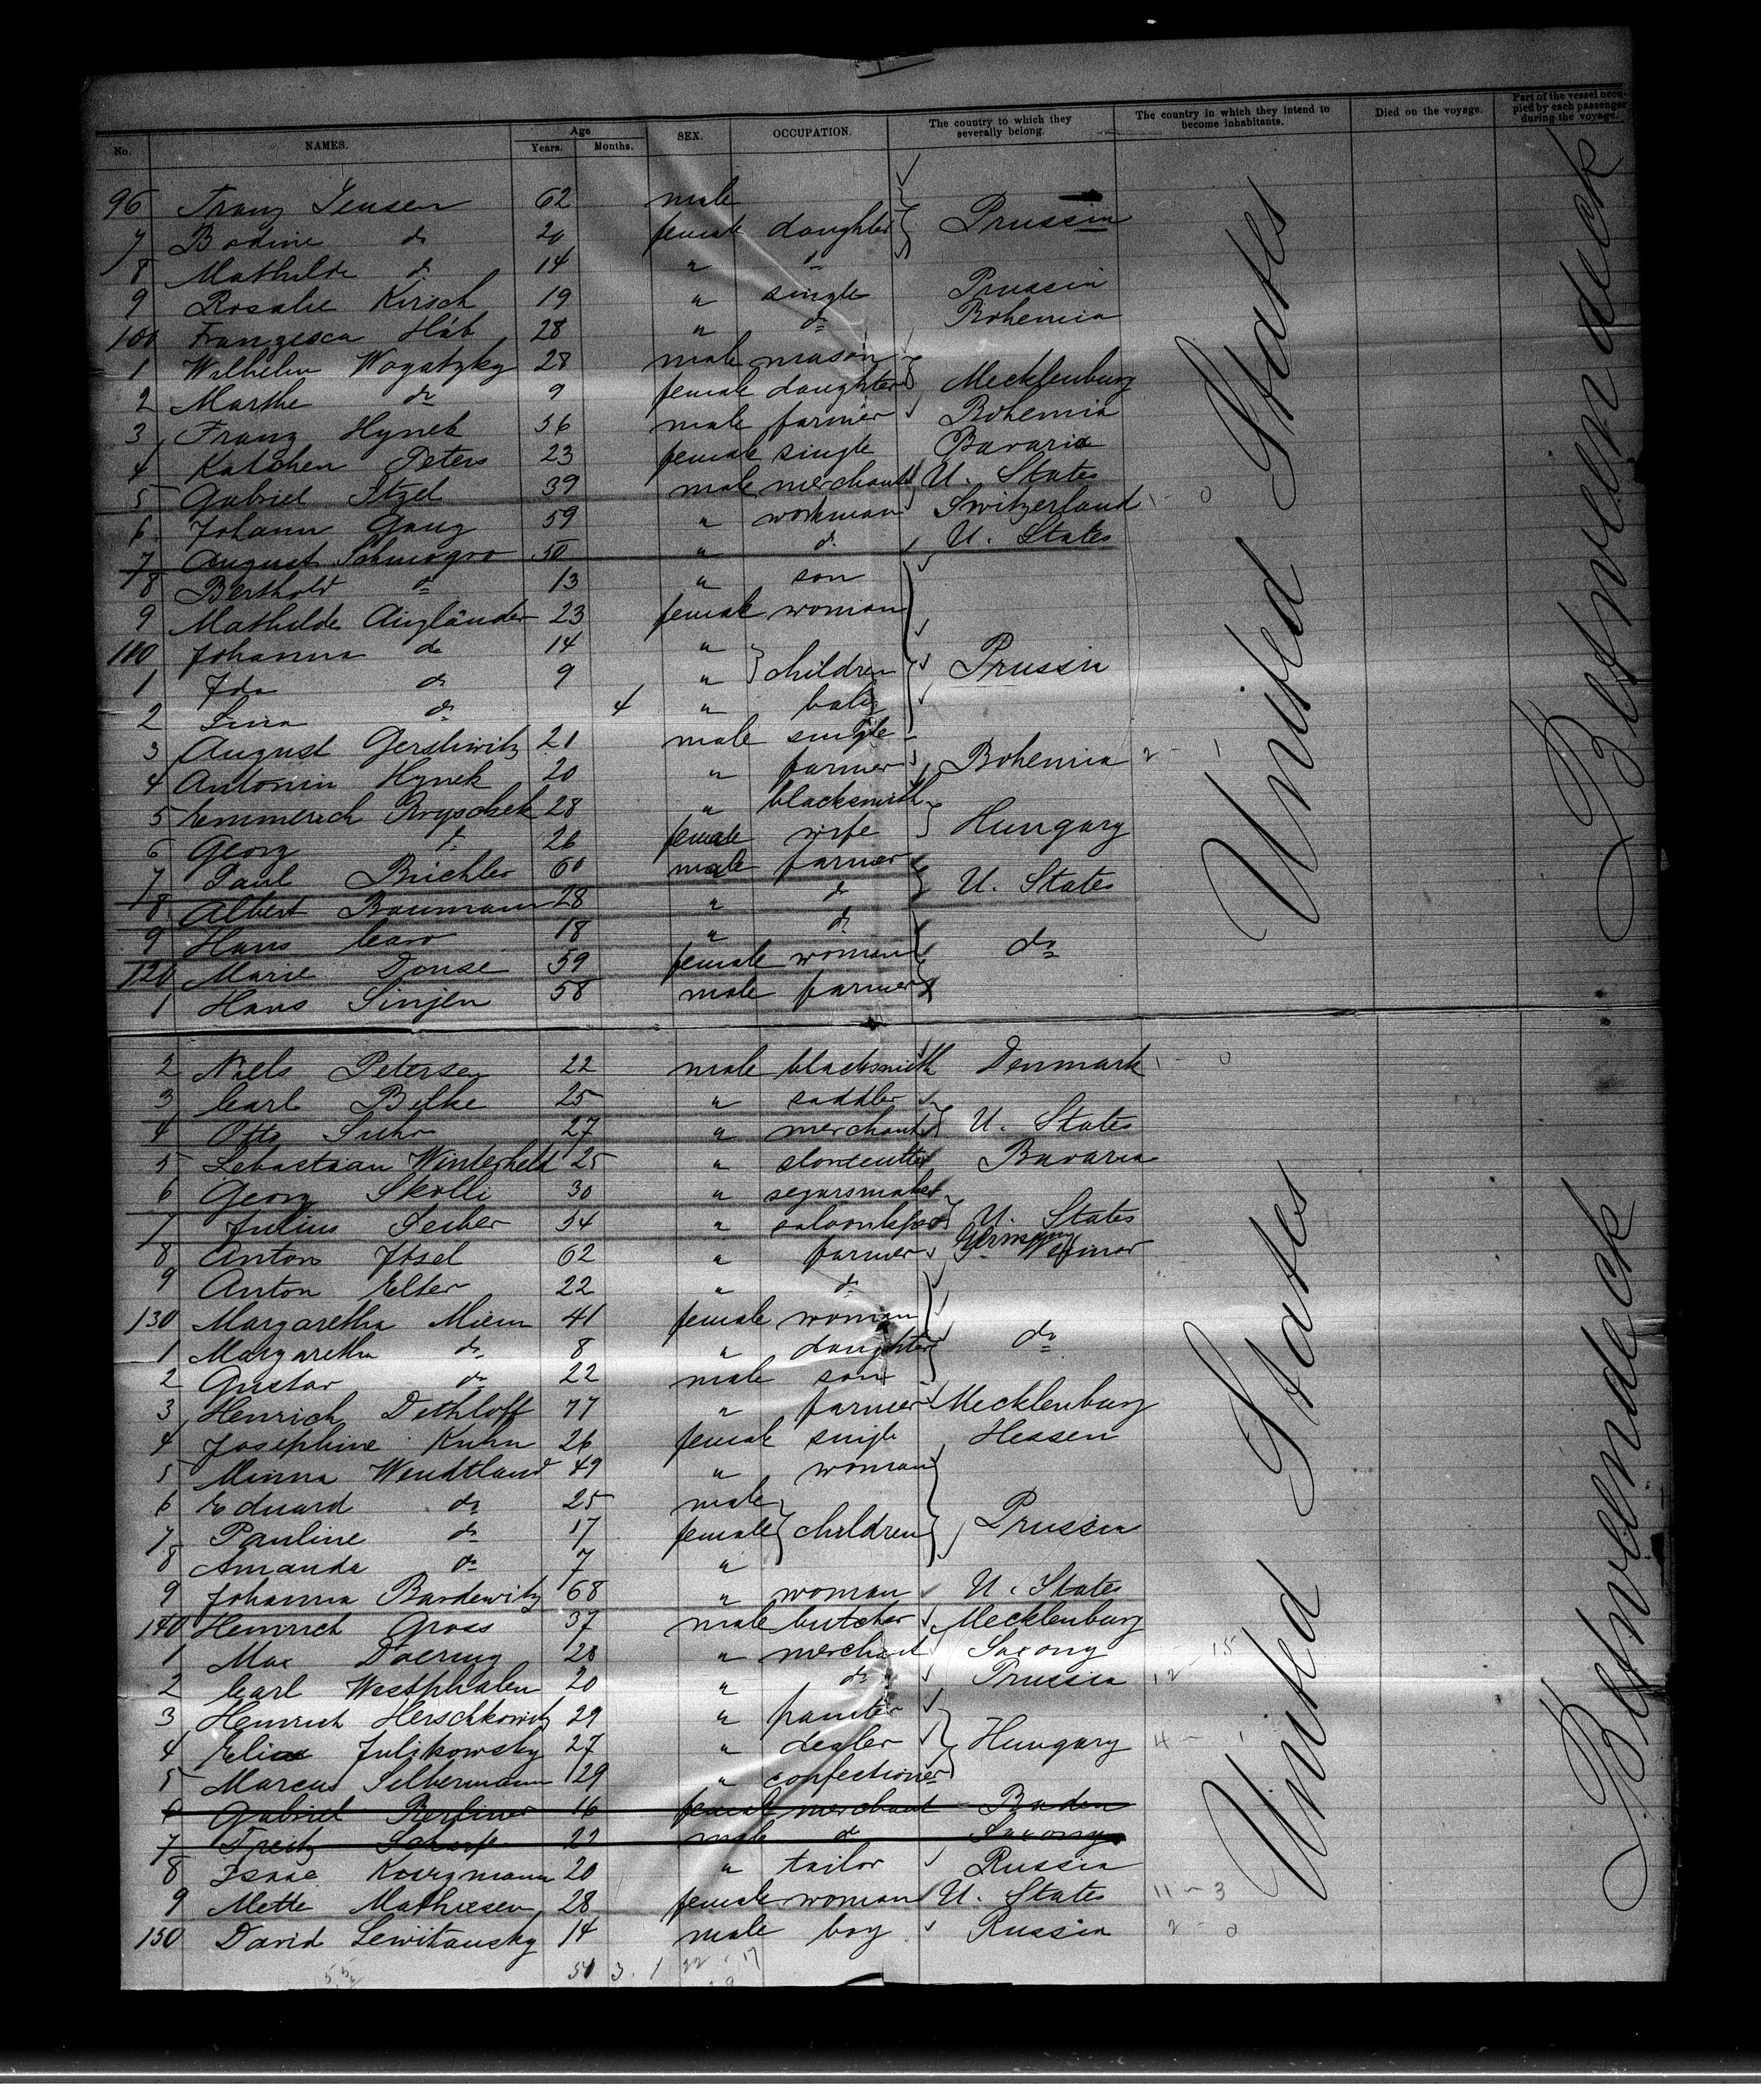 No. NAMES. Age Years. Months. SEX. OCCUPATION. The country to which they severally belong. The country in which they intend to become inhabitants. Died on the voyage. Part of the vessel occupied by each passenger during the voyage.
96 Franz Jensen 62 male
7 Bodine do 20 female daughter Prussia
8 Mathilde do 14 " do
9 Rosalie Kirsch 19 " single Prussia
100 Franzisca Háb 28 " do Bohemia
1 Wilhelm Wogatzky 28 male mason
2 Marthe do 9 female daughter Mecklenburg
3 Franz Hynek 56 male farmer Bohemia
4 Katchen Peters 23 female single Bavaria
5 Gabriel Itzel 39 male merchant U. States
6 Johann Ganz 59 " workman Switzerland 1 - 0
7 August Schmogro 50 " do U. States
8 Berthold do 13 " son
9 Mathilde Engländer 23 female woman
110 Johanna do 14 "
1 Ida do 9 " children Prussia
2 Lina do 4 " baby
3 August Gershwitz 21 male single
4 Antonin Hynek 20 " farmer Bohemia 2 - 1
5 Emmerich 28 " blacksmith
6 Georg do 26 female wife Hungary
7 Paul Büchler 60 male farmer
8 Albert Baumann 28 " do U. States
9 Hans Caro 18 " do
120 Marie Donse 59 female woman do
1 Hans Sinjen 58 male farmer
2 Niels Petersen 22 male blacksmith Denmark 1 - 0
3 Carl Belke 25 " saddler
4 Otto Suhr 27 " merchant U. States
5 Sebastian Winterheld 25 " stonecutter Bavaria
6 Georg Skolli 30 " segarsmaker
7 Julius Seiber 34 " U. States
8 Anton Jbsel 62 " farmer Germany Weimar
9 Anton Elter 22 " do
130 Margaretha Miem 41 female woman
1 Margaretha do 8 " daughter do
2 Gustav do 22 male son
3 Henrich Dethloff 77 " farmer Mecklenburg
4 Josephine Kuhn 26 female single Hessen
5 Minna Wendtland 49 " woman
6 Eduard do 25 male
7 Pauline do 17 female children Prussia
8 Amanda do 7 "
9 Johanna Bardewitz 68 " woman U. States
140 Heinrich Gross 37 male butcher Mecklenburg
1 Max Doering 28 " merchant Saxony
2 Carl Westphalen 20 " do Prussia 12 - 15
3 Heinrich Herschkowitz 29 " painter
4 Elias Julikowsky 27 " dealer Hungary 4 - 1
5 Marcus Silbermann 29 " confectioner
6 Gabriel Berliner 16 female merchant Baden
7 Fritz Scharfe 22 male do Saxony
8 Isaac Kurzmann 20 " tailor Russia
9 Mette Mathiesen 28 female woman U. States 11 - 3
150 David Lewitansky 14 male boy Russia 2 - 0
United States
Betweendeck
United States
Betweendeck